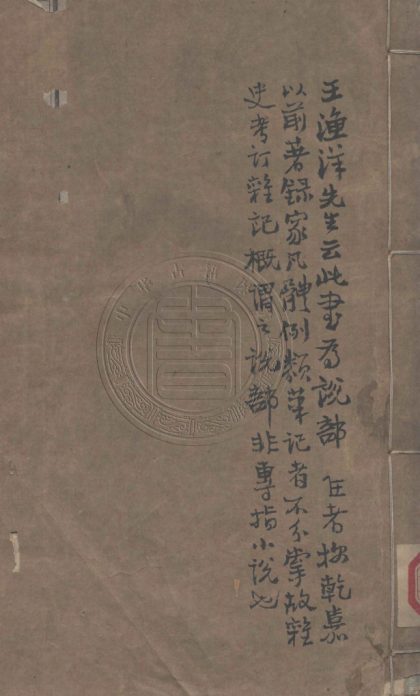 王漁洋先生云此書为説部 任者按乾嘉
以前著録家凡體例類筆記者不分掌故雜
史考订雜記概謂之説部非專指小説也